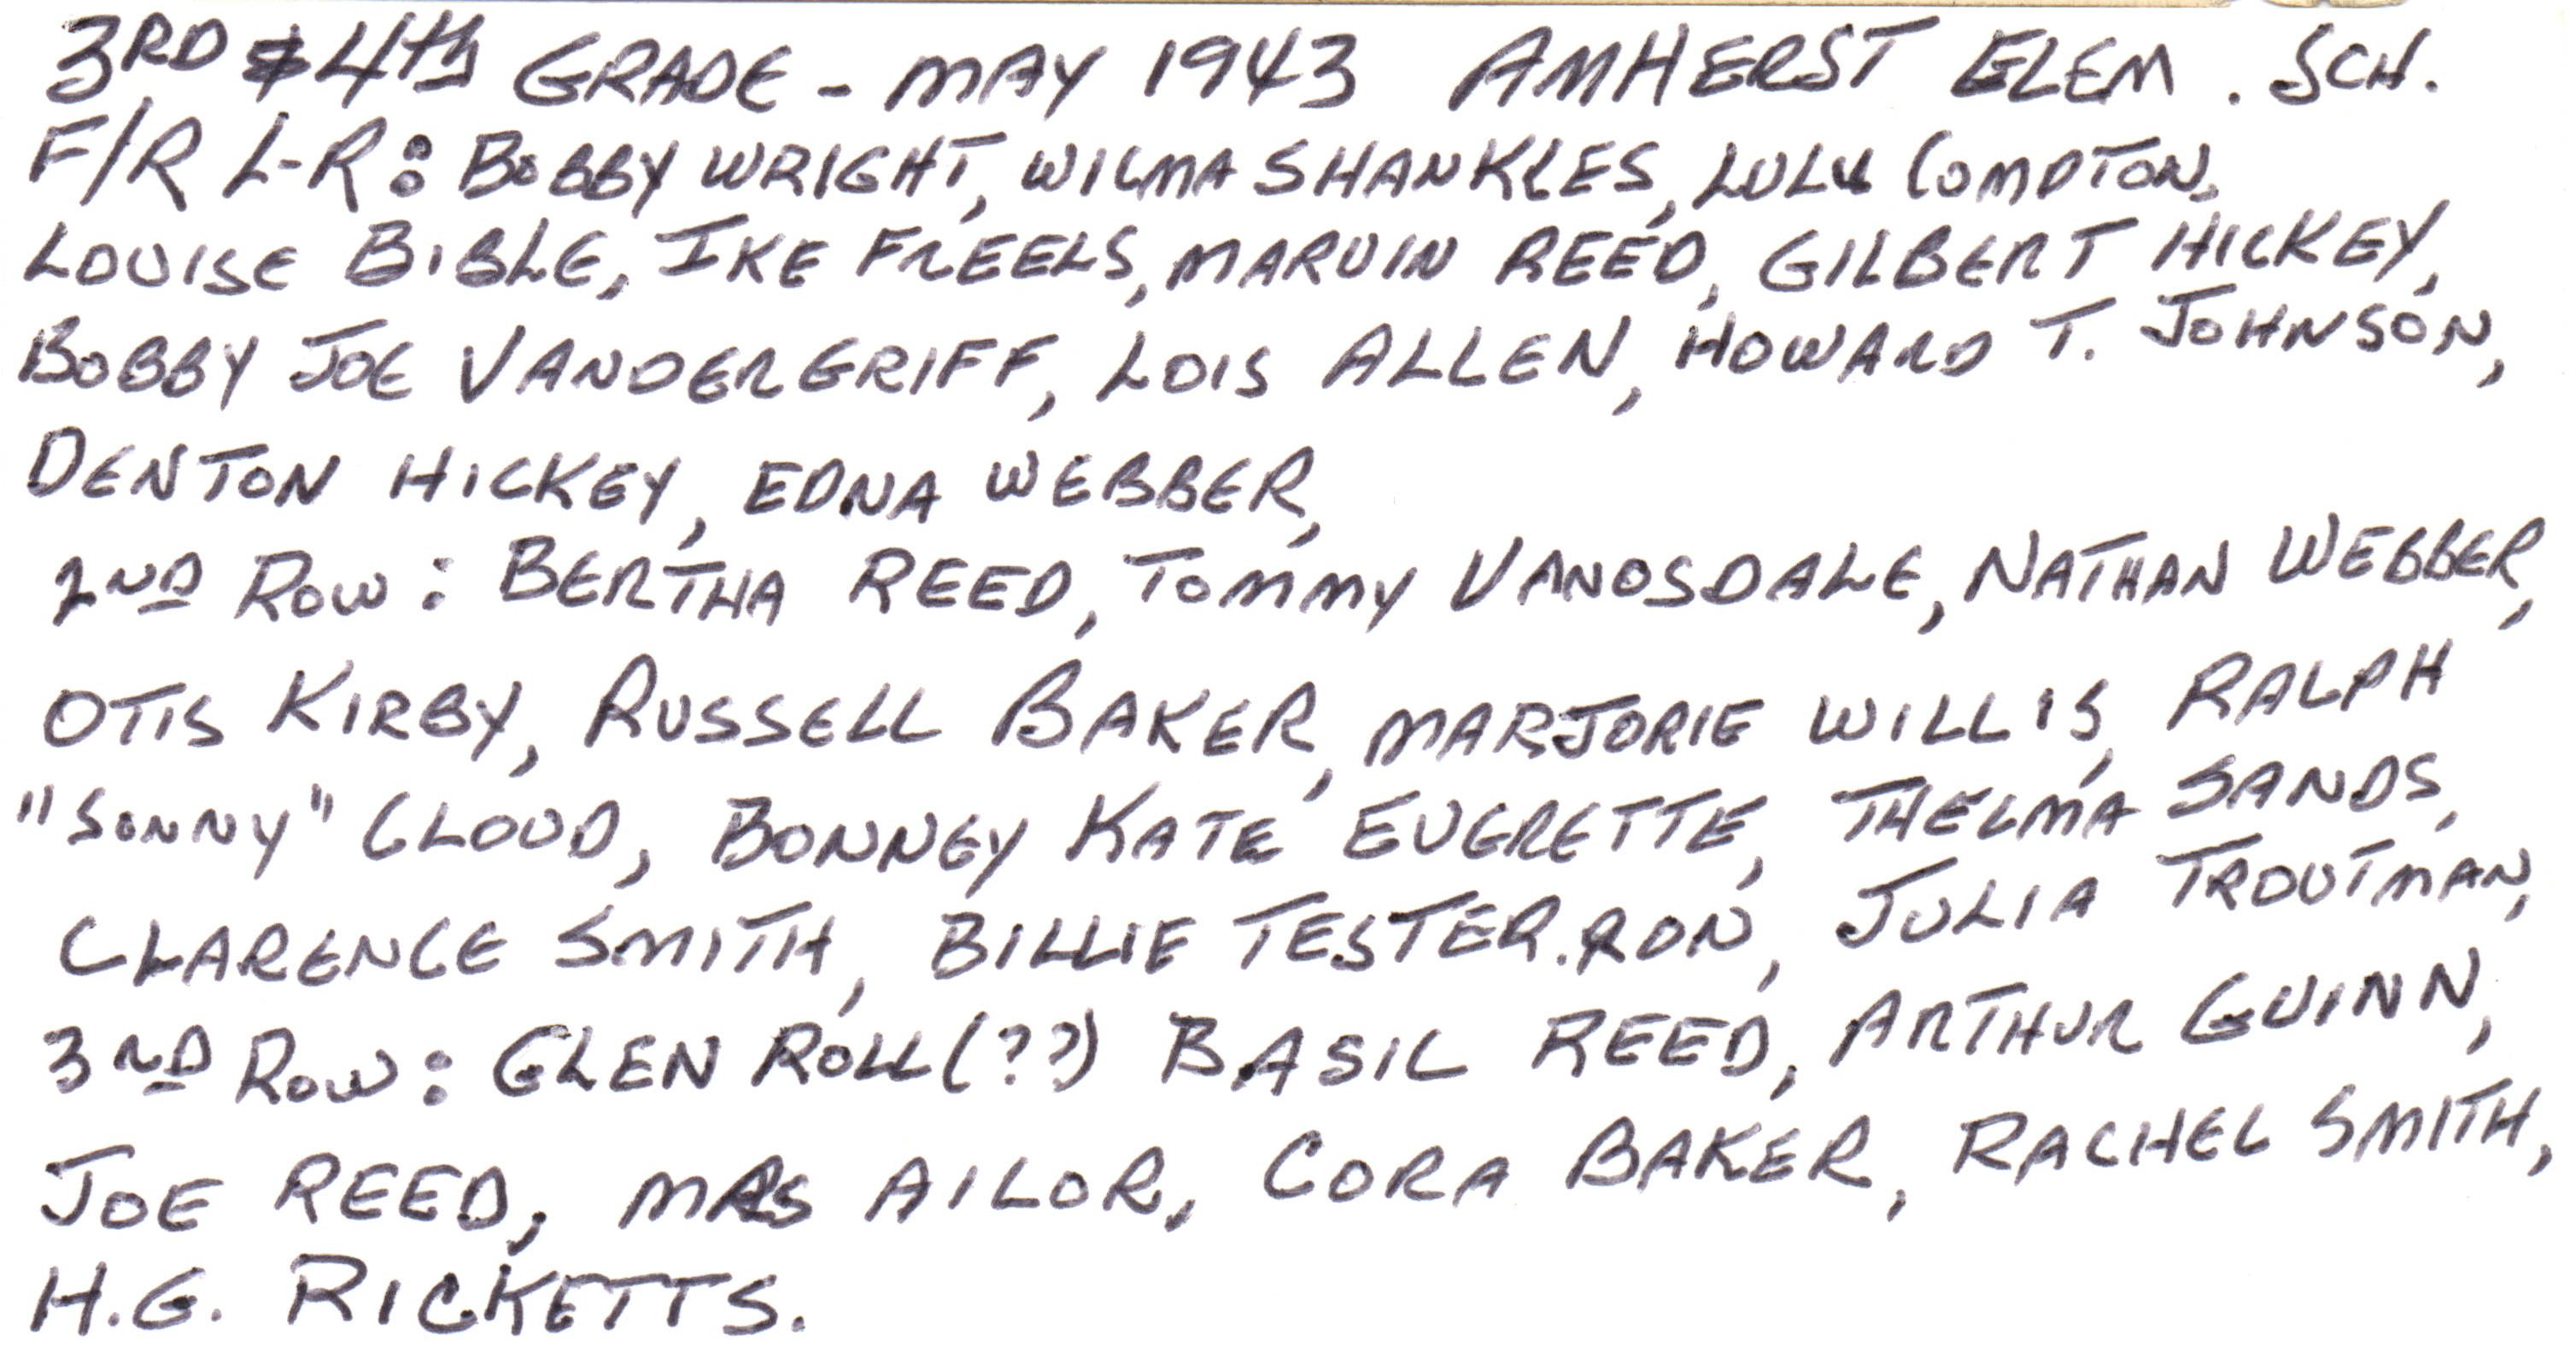 3RD & 4th GRADE - MAY 1943 AMHERST ELEM. SCH.
F/R L-R: BOBBY WRIGHT, WILMA SHANKLES, LULU COMPTON,
LOUISE BIBLE, IKE FREELS, MARVIN REED, GILBERT HICKEY,
BOBBY JOE VANDERGRIFF, LOIS ALLEN, HOWARD T. JOHNSON,
DENTON HICKEY, EDNA WEBBER,
2ND ROW: BERTHA REED, TOMMY VANOSDALE, NATHAN WEBBER,
OTIS KIRBY, RUSSELL BAKER, MARJORIE WILLIS, RALPH
"SONNY" CLOUD, BONNEY KATE EVERETTE, THELMA SANDS,
CLARENCE SMITH, BILLIE TESTER.RON, JULIA TROUTMAN,
3RD ROW: GLEN ROLL(??) BASIL REED, ARTHUR GUINN,
JOE REED, MRS AILOR, CORA BAKER, RACHEL SMITH,
H.G. RICKETTS.